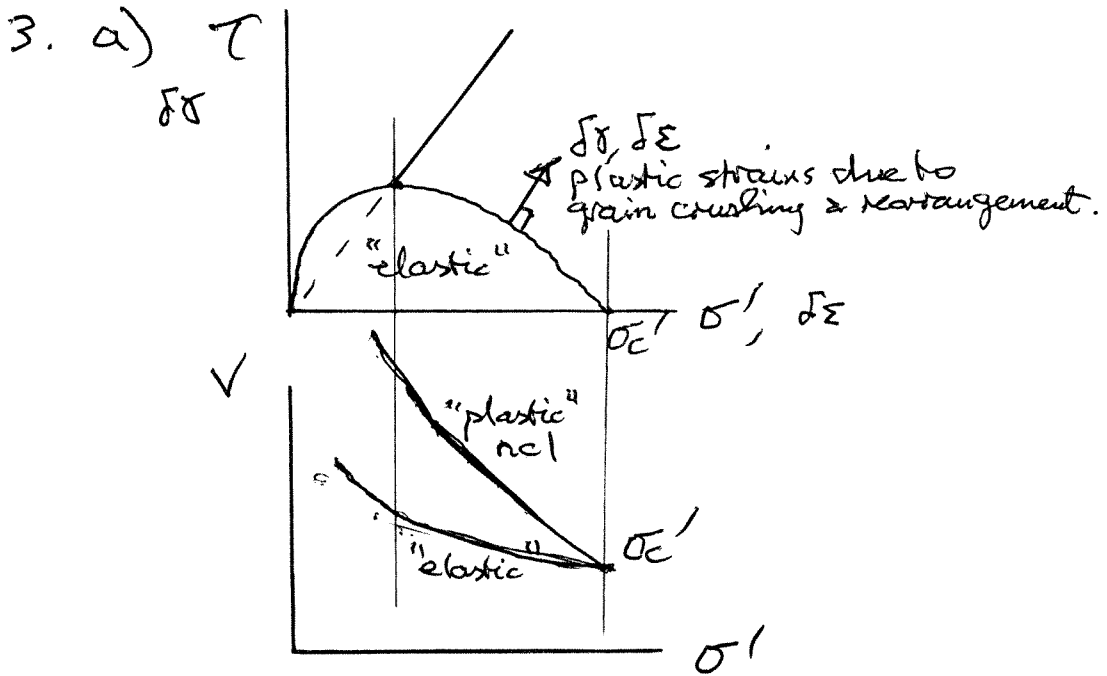 3. a) τ
δγ
δγ, δε
plastic strains due to
grain crushing & rearrangement.
"elastic"
σc' σ', δε
V
"plastic"
ncl
σc'
"elastic"
σ'